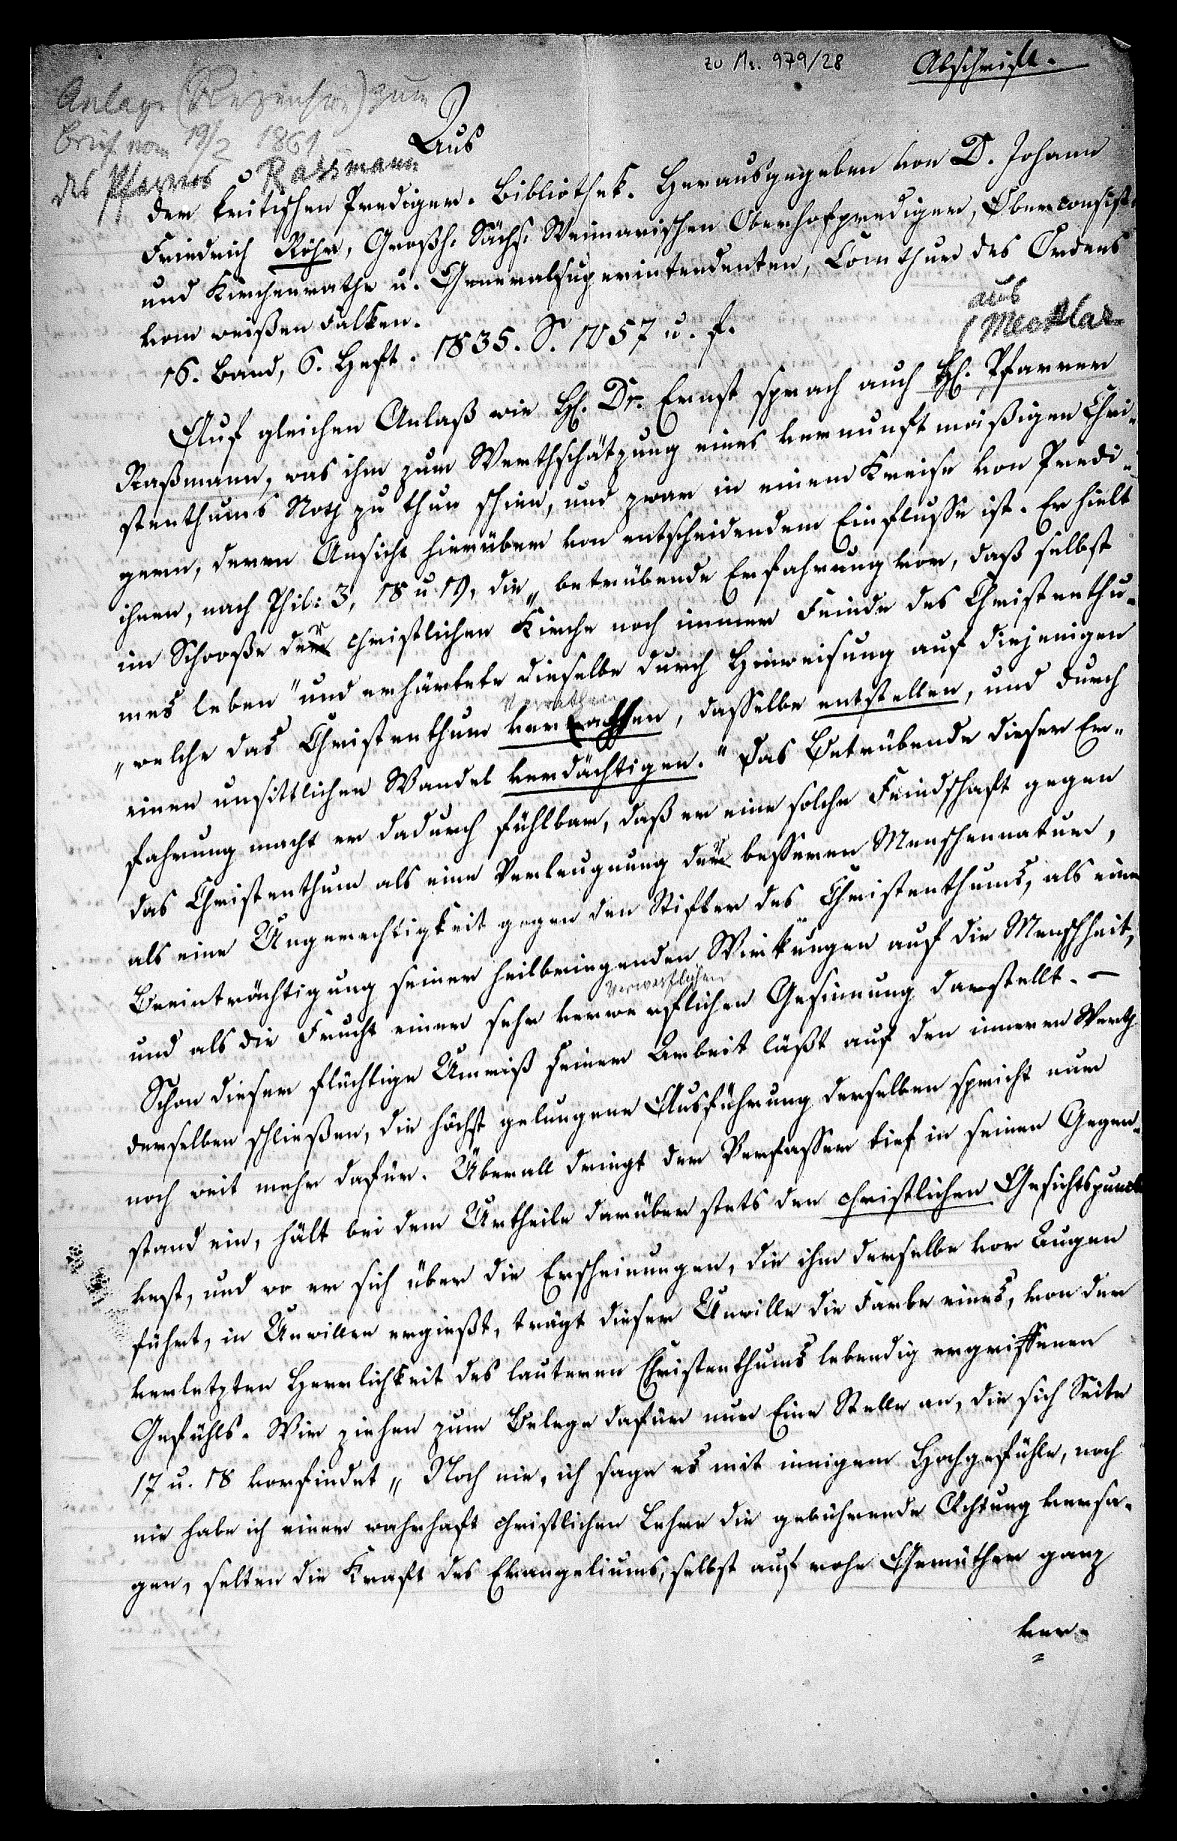 zu Nr. 979/28
Abschrift.
Anlage (Rezension) zum
Brief vom 19/2 1861
des Pfarrers Rassmann
Aus
der kritischen Prediger-Bibliothek. Herausgegeben von D. Johann
Friedrich Röhr, Großh. Sächs. Weimarischen Oberhofprediger, Oberconsist.
und Kirchenrathe u. Generalsuperintendenten, Comthur des Ordens
vom weißen Falken.
16. Band, 6. Heft. 1835. S. 1057 u. f.
aus
(Mecklar
Auf gleichen Anlaß wie H. Dr. Ernst sprach auch H. Pfarrer
Raßmann, was ihm zur Werthschätzung eines vernunftmäßigen Chri-
stenthums Noth zu thun schien, und zwar in einem Kreise von Predi-
gern, deren Ansicht hierüber von entscheidendem Einflusse ist. Er hielt
ihnen, nach Phil: 3, 18 u 19, die „betrübende Erfahrung vor, daß selbst
im Schooße der christlichen Kirche noch immer Feinde des Christenthu-
mes leben" und erhärtete dieselbe durch Hinweisung auf diejenigen
„welche das Christenthum verachten, dasselbe entstellen, und durch
einen unsittlichen Wandel verdächtigen." Das Betrübende dieser Er-
fahrung macht er dadurch fühlbar, daß er eine solche Feindschaft gegen
das Christenthum als eine Verleugnung der besseren Menschennatur,
als eine Ungerechtigkeit gegen den Stifter des Christenthums, als eine
Beeinträchtigung seiner heilbringenden Wirkungen auf die Menschheit,
verwerflichen
und als die Frucht einer sehr verwerflichen Gesinnung darstellt. –
Schon dieser flüchtige Umriß seiner Arbeit läßt auf den inneren Werth
derselben schließen, die höchst gelungene Ausführung derselben spricht nur
noch weit mehr dafür. Überall dringt der Verfasser tief in seinen Gegen-
stand ein, hält bei dem Urtheile darüber stets den christlichen Gesichtspunct
vest, und wo er sich über die Erscheinungen, die ihm derselbe vor Augen
führt, in Unwillen ergießt, trägt dieser Unwille die Farbe eines, von der
verletzten Herrlichkeit des lauteren Christenthums lebendig ergriffenen
Gefühls. Wir ziehen zum Belege dafür nur Eine Stelle an, die sich Seite
17 u. 18 vorfindet „Noch nie, ich sage es mit innigem Hochgefühle, noch
nie habe ich einer wahrhaft christlichen Lehre die gebührende Achtung versa-
gen, selten die Kraft des Evangeliums, selbst auf rohe Gemüther ganz
ver-